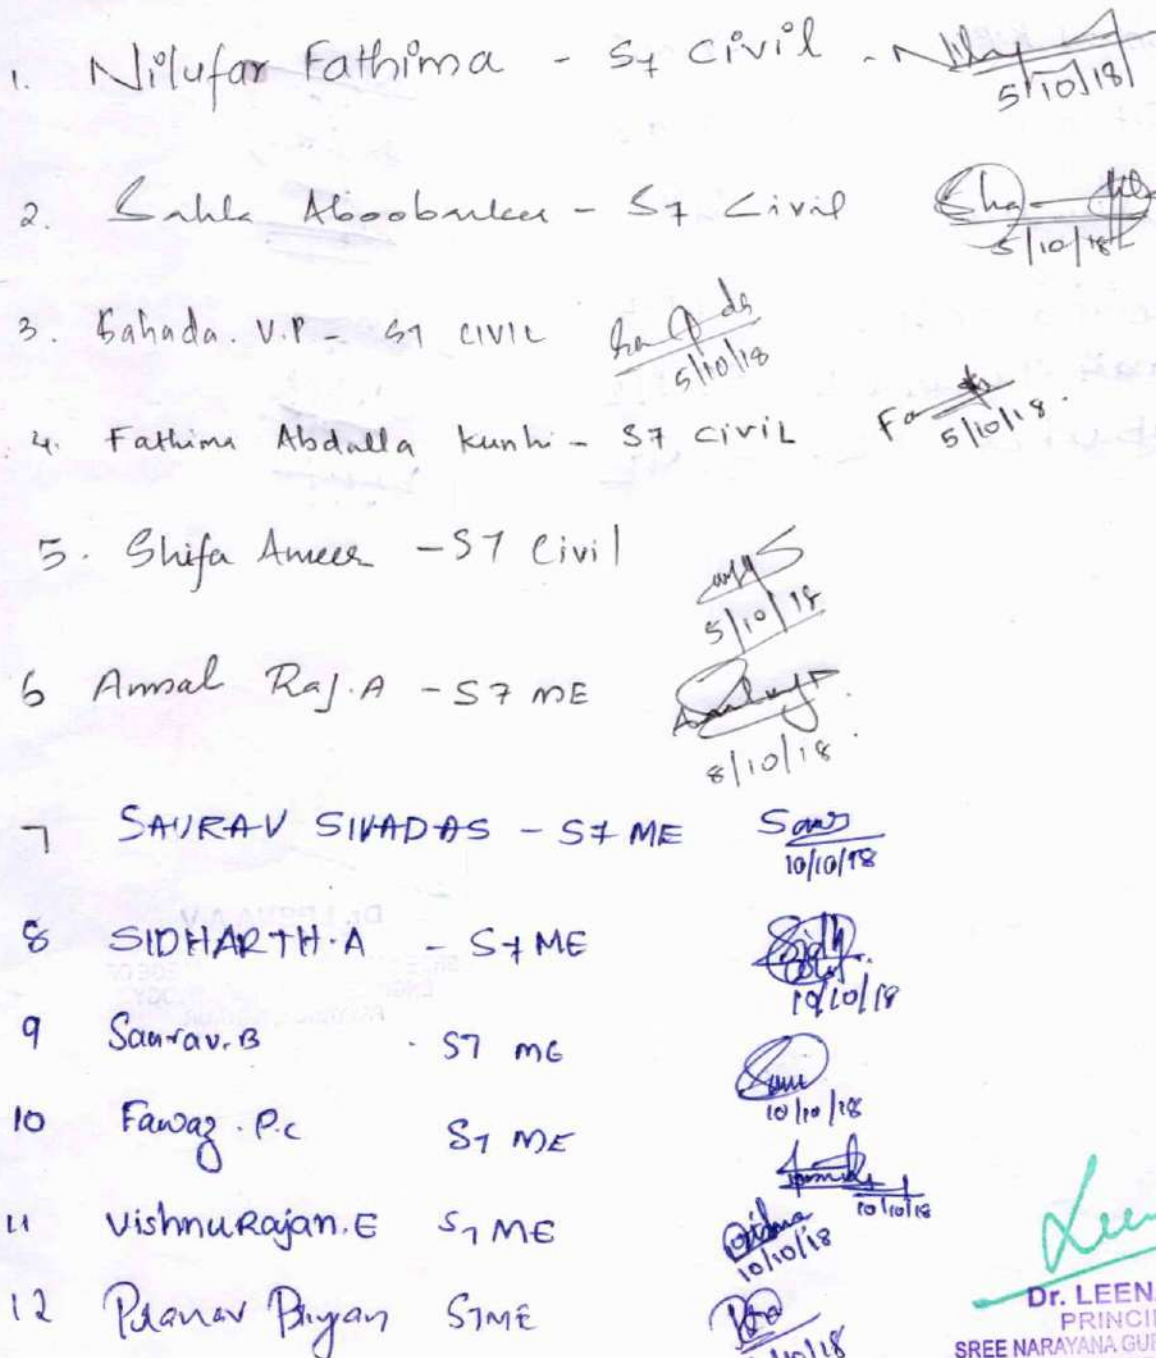 1. Nilufar Fathima - S7 Civil -
5/10/18
2. Sahla Aboobaker - S7 Civil
5/10/18
3. Sahada. V.P - S7 CIVIL
5/10/18
4. Fathima Abdulla Kunhi - S7 CIVIL
5/10/18.
5. Shifa Ameer - S7 Civil
5/10/18
6 Amal Raj.A - S7 ME
8/10/18.
7 SAURAV SIVADAS - S7 ME
10/10/18
8 SIDHARTH.A - S7 ME
10/10/18
9 Saurav.B - S7 ME
10/10/18
10 Fawaz.P.c S7 ME
10/10/18
11 Vishnu Rajan.E S7 ME
10/10/18
12 Pranav S7ME
Dr. LEENA
PRINCI
SREE NARAYANA GUR